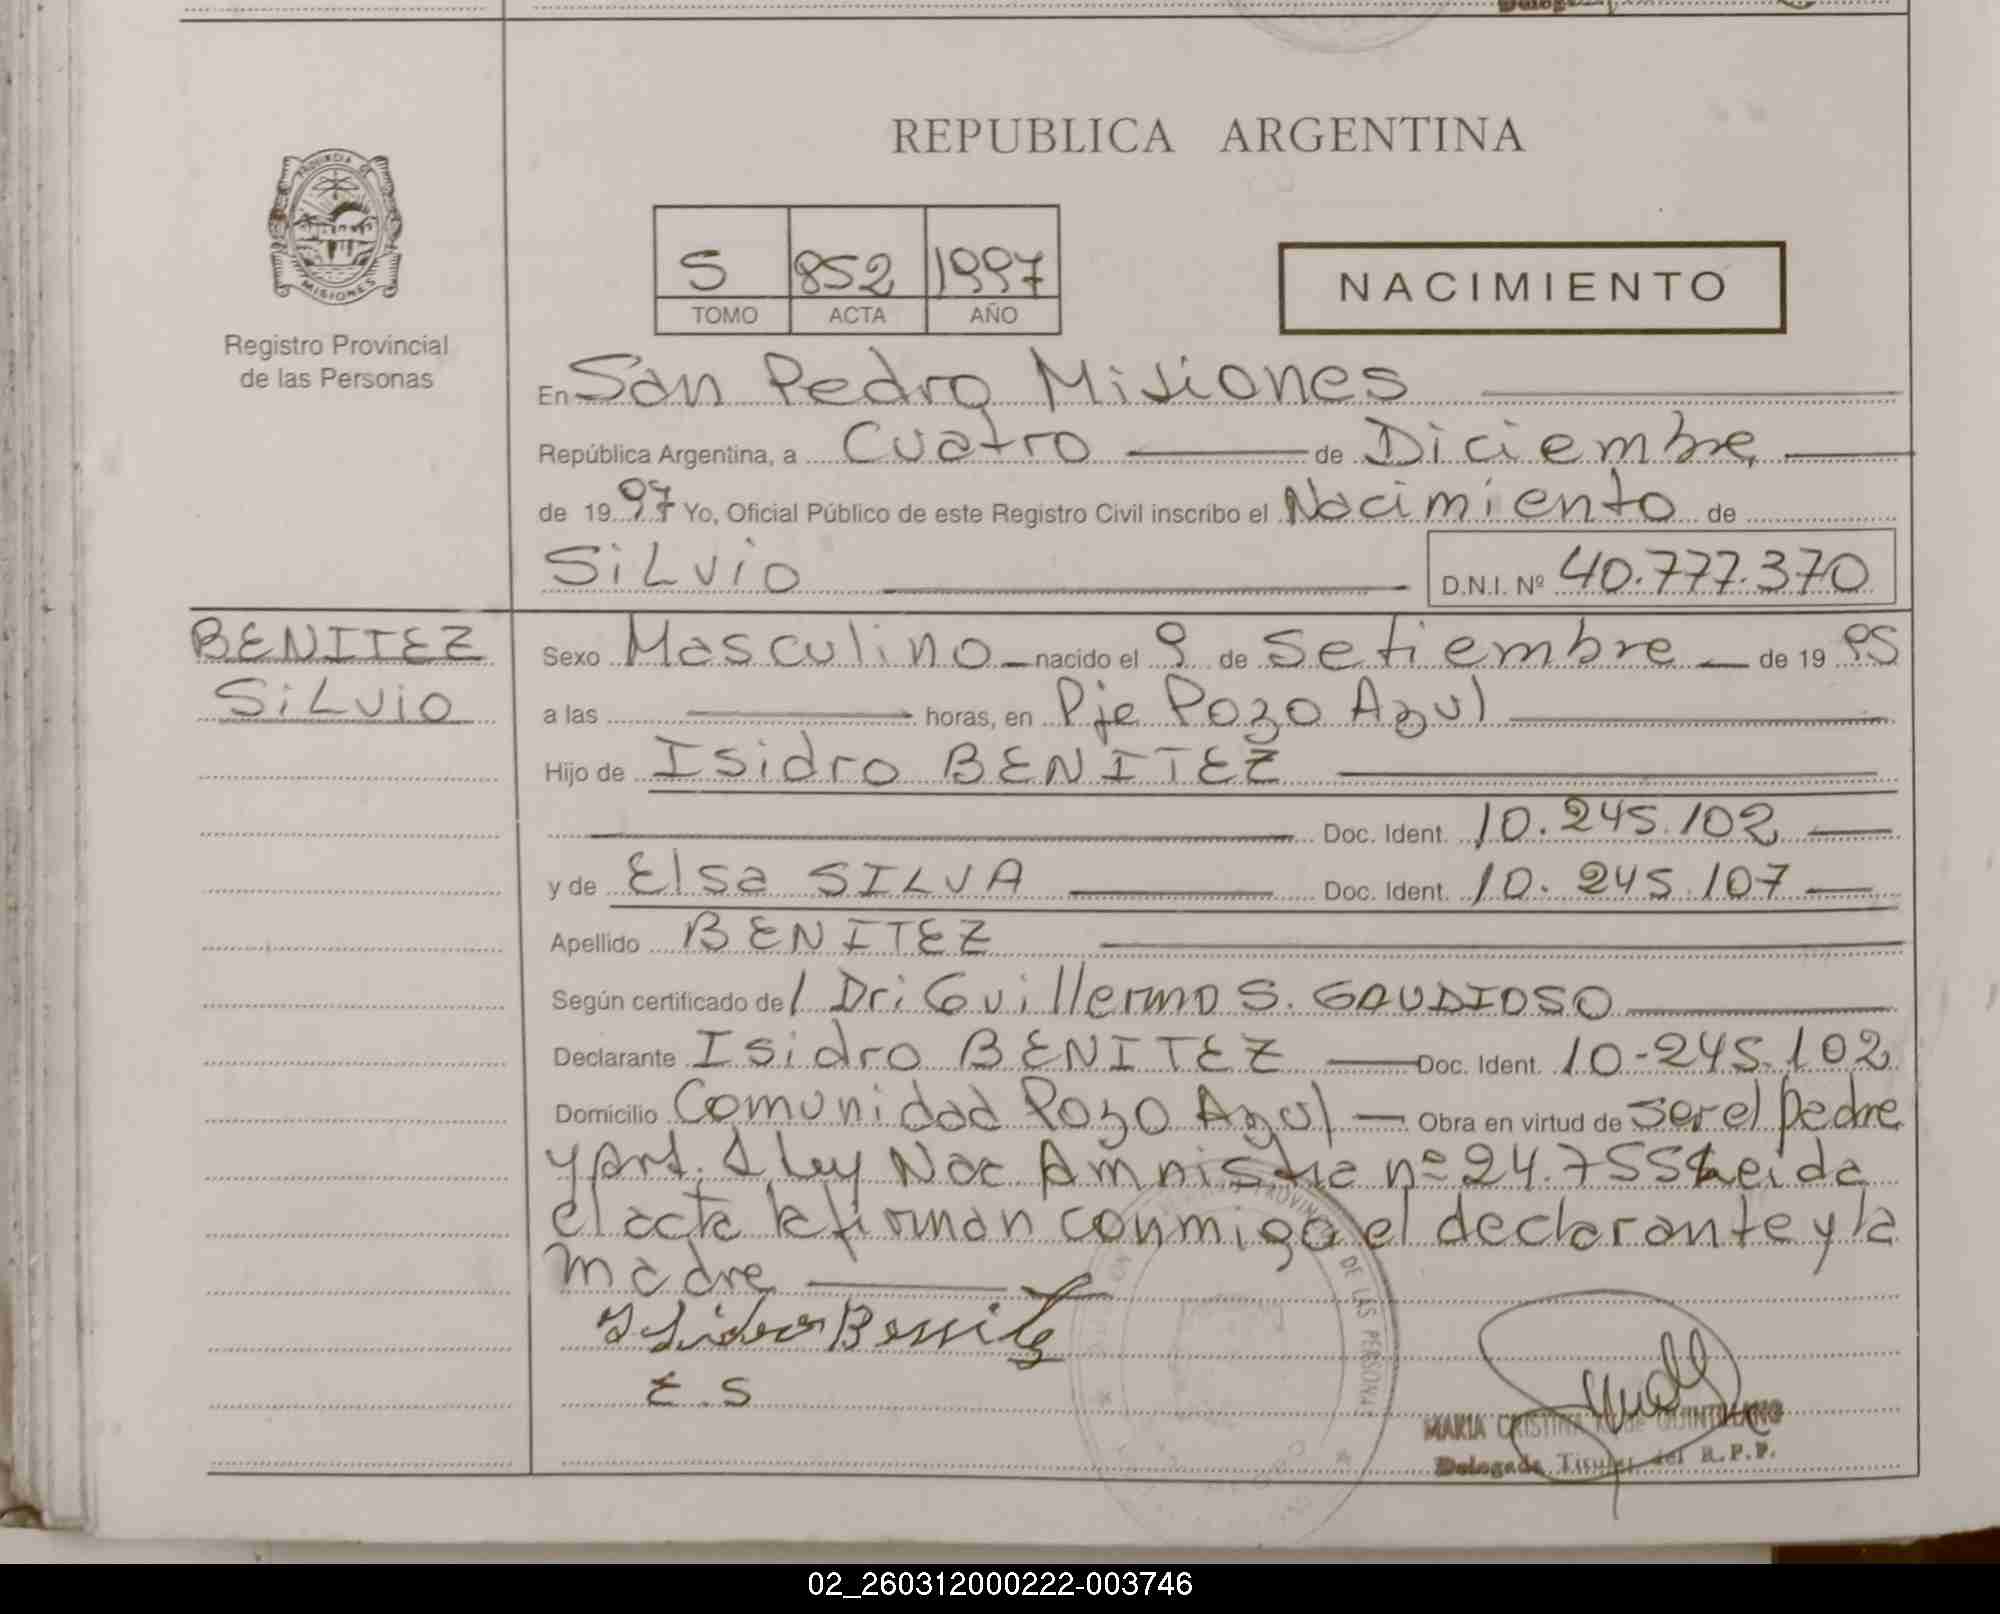 REPUBLICA ARGENTINA
PROVINCIA DE
MISIONES
Registro Provincial
de las Personas
5 852 1997
TOMO ACTA AÑO
NACIMIENTO
En San Pedro Misiones
República Argentina, a Cuatro de Diciembre
de 1997 Yo, Oficial Público de este Registro Civil inscribo el Nacimiento de
SiLvio D.N.I. Nº 40.777.370
BENITEZ
SiLvio
Sexo Masculino nacido el 9 de Setiembre de 19 95
a las horas, en Pje Pozo Azul
Hijo de Isidro BENITEZ
Doc. Ident. 10.245.102
y de Elsa SILVA Doc. Ident. 10.245.107
Apellido BENITEZ
Según certificado de Dr. Guillermo S. GAUDIOSO
Declarante Isidro BENITEZ Doc. Ident. 10-245.102
Domicilio Comunidad Pozo Azul Obra en virtud de ser el padre
y Art. Ley Nac Amnistia nº 24.755 Leida
el acta la firman conmigo el declarante y la
madre
Isidro Benitez
E.S
DE LAS PERSONAS
MARIA CRISTINA de QUINTILIANO
Delegada Titular del R.P.P.
02_260312000222-003746